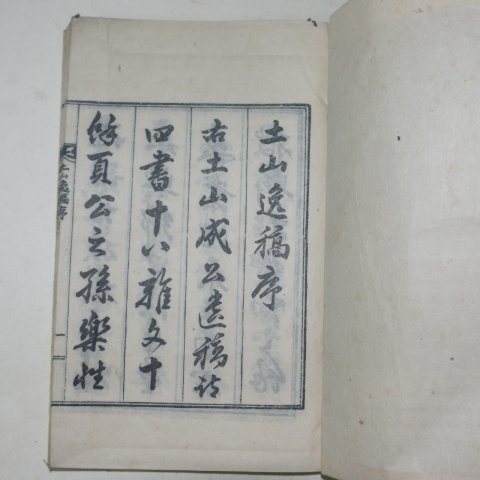 土山逸稿序
右土山成公遺稿詩
四書十八雜文十
餘頁公之孫樂性
土山逸稿序
一